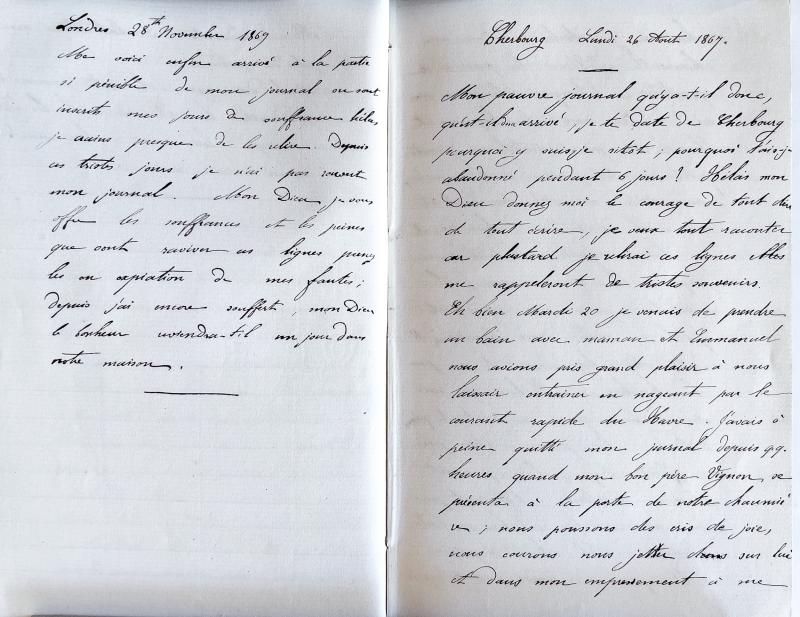 Londres 28th Novembre 1869
Me voici enfin arrivé à la partie
si pénible de mon journal où sont
inscrits mes jours de souffrance hélas
je crains presque de les relire. Depuis
ces tristes jours je n'ai pas rouvert
mon journal. Mon Dieu je vous
offre les souffrances et les peines
que vont raviver ces lignes prenez
les en expiation de mes fautes;
depuis j'ai encore souffert, mon Dieu
le bonheur reviendra-t-il un jour dans
notre maison.
Cherbourg Lundi 26 Aout 1867.
Mon pauvre journal qu'y a-t-il donc,
qu'est-il arrivé, je te date de Cherbourg
pourquoi y suis-je sitôt; pourquoi t'ai-je
abandonné pendant 6 jours? Hélas mon
Dieu donnez moi le courage de tout dire
de tout écrire, je veux tout raconter
car plustard je relirai ces lignes elles
me rappeleront de tristes souvenirs.
Eh bien Mardi 20 je venais de prendre
un bain avec maman et Emmanuel
nous avions pris grand plaisir à nous
laisser entrainer en nageant par le
courant rapide du Havre. J'avais à
peine quitté mon journal depuis qq.
heures quand mon bon père Vignon se
présenta à la porte de notre chaumiè
re; nous poussons des cris de joie,
nous courons nous jetter sur lui
et dans mon empressement à me